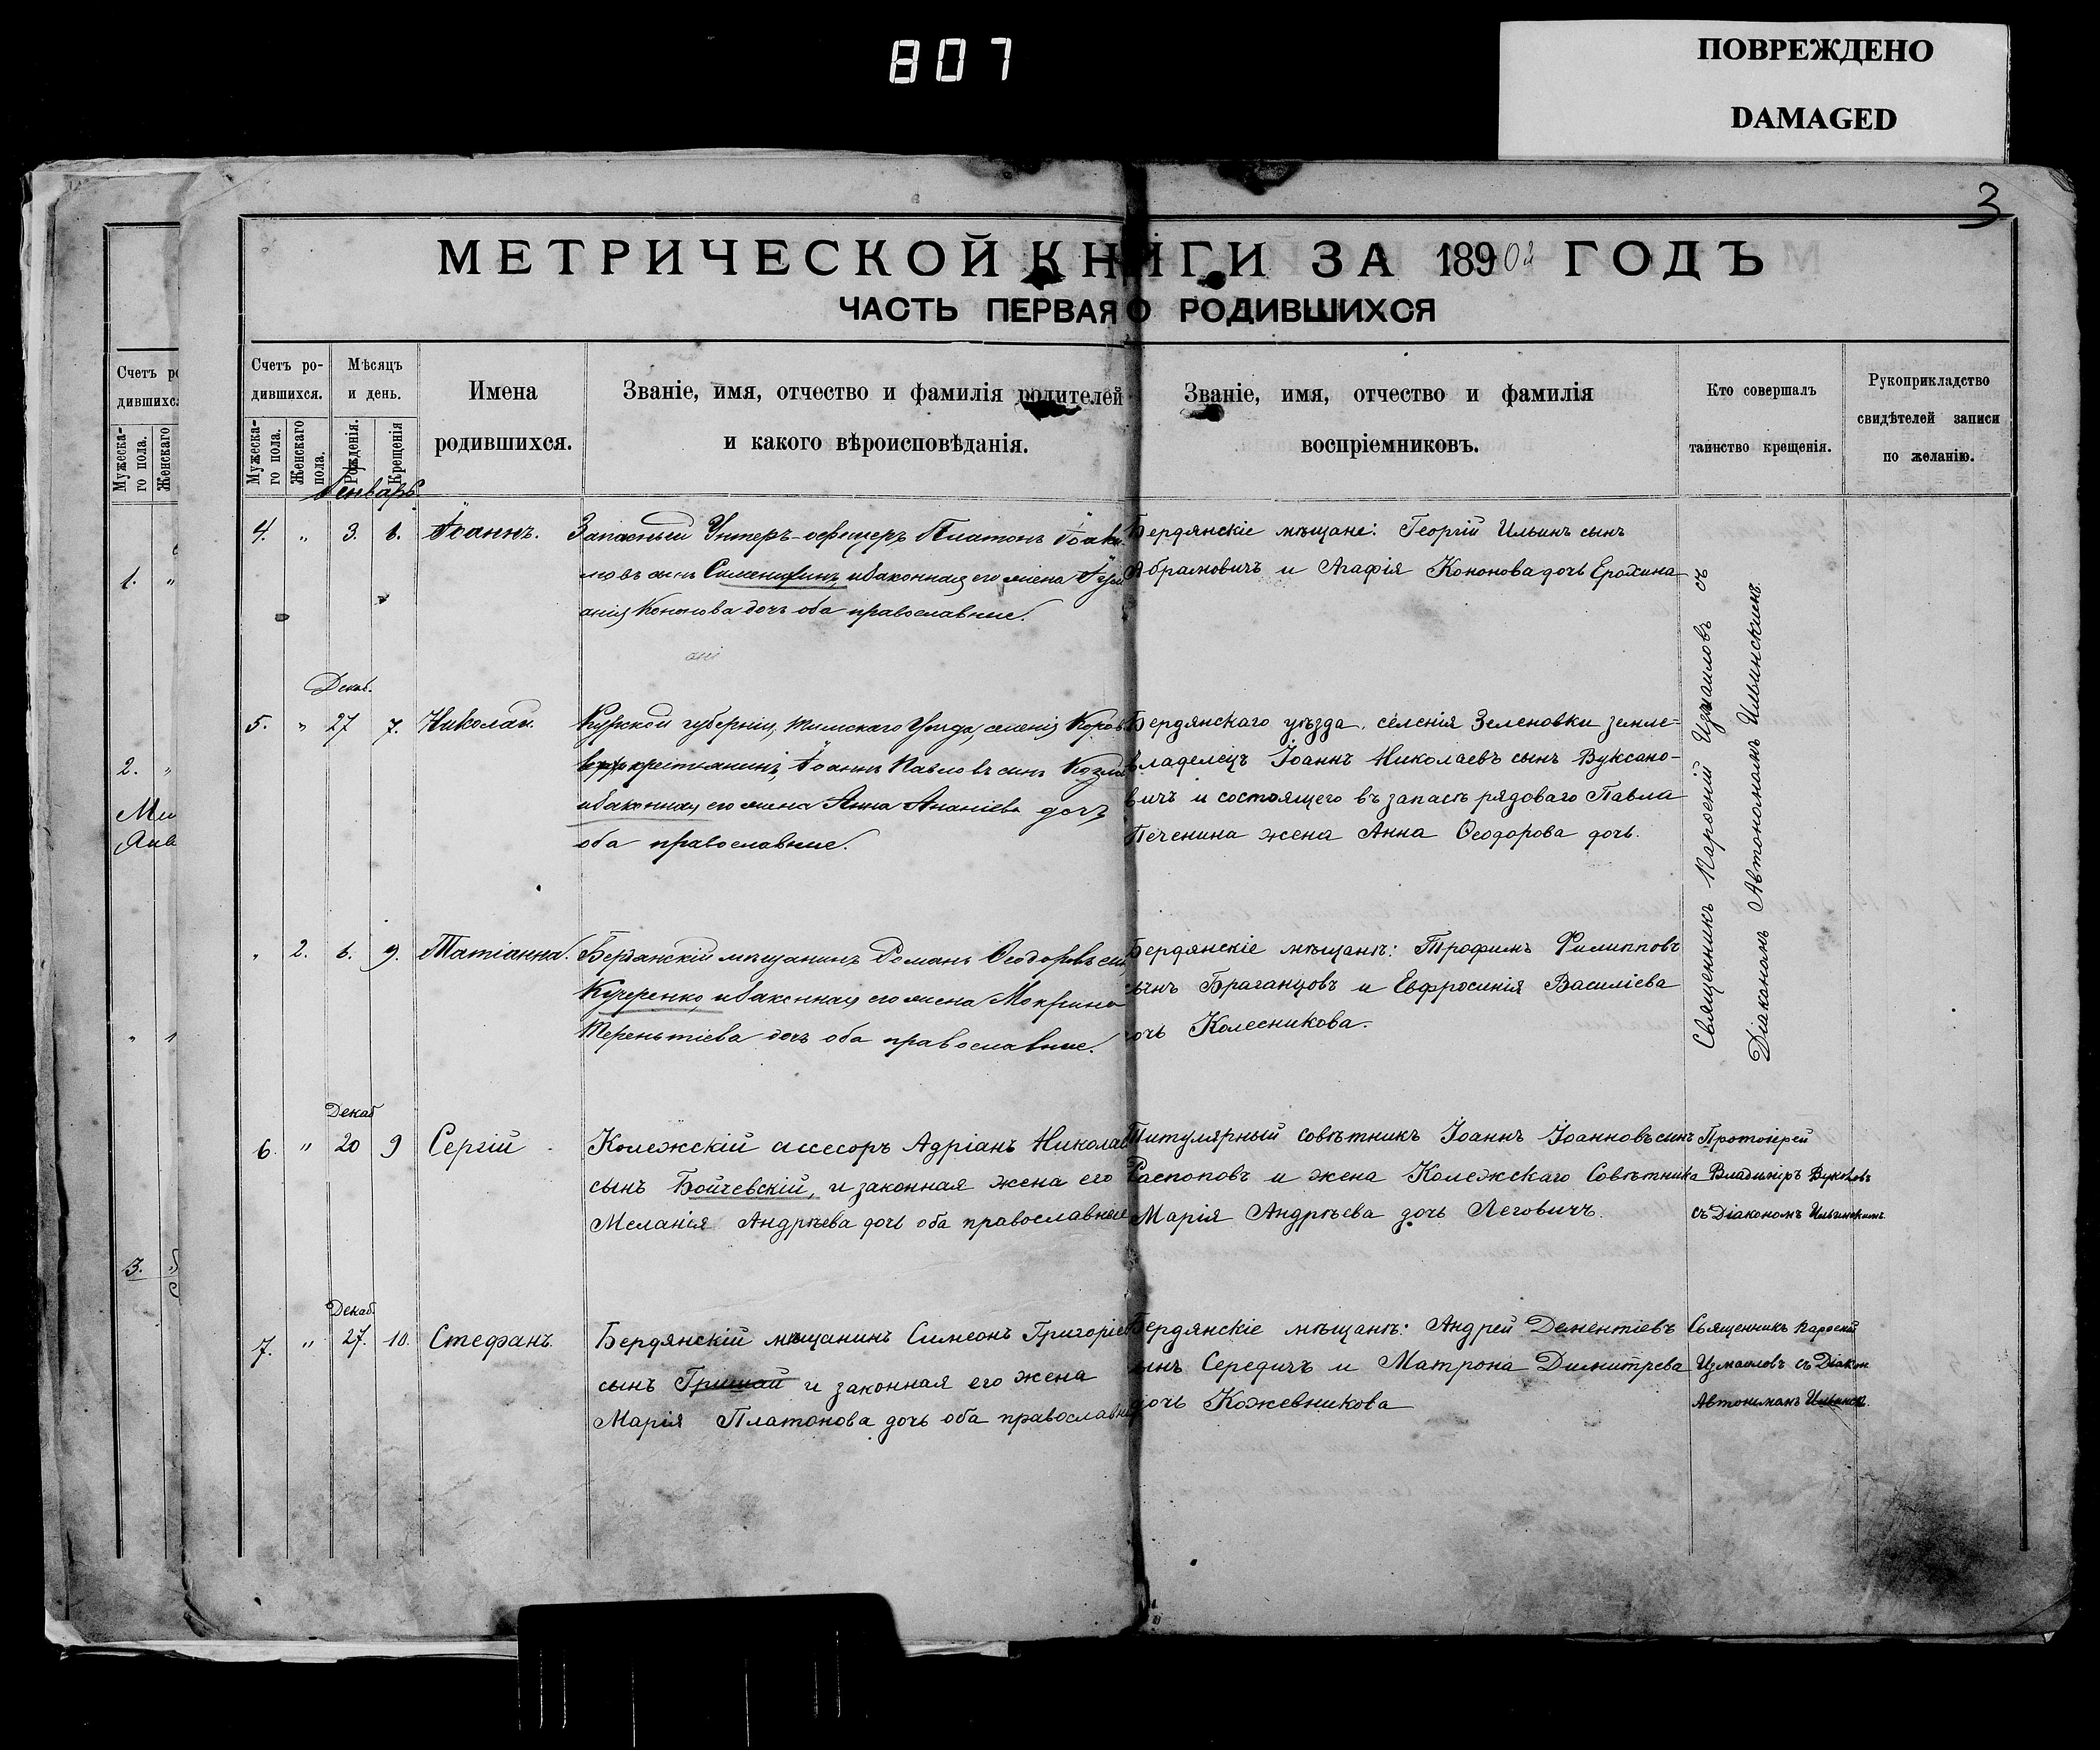 807
ПОВРЕЖДЕНО
DAMAGED
3
МЕТРИЧЕСКОЙ КНИГИ ЗА 189 ГОДЪ
ЧАСТЬ ПЕРВАЯ О РОДИВШИХСЯ
Счетъ ро-
дившихся.
Мужеска-
го пола.
Женскаго
пола.
Мѣсяцъ
и день.
Рожденія.
Крещенія
Имена
родившихся.
Званіе, имя, отчество и фамилія родителей
и какого вѣроисповѣданія.
Званіе, имя, отчество и фамилія
воспріемниковъ.
Кто совершалъ
таинство крещенія.
Рукоприкладство
свидѣтелей записи
по желанію.
Январь.
4. " 3. 6. Іоаннъ.
Запасный Унтеръ-офицеръ Платонъ
сынъ и законная его жена
Кононова дочь оба православные.
Бердянскіе мѣщане: Георгій Ильинъ сынъ
Абрамовичъ и Агафія Кононова дочь Ерохина
Декаб.
5. " 27 7. Николай.
Курской губерніи, Тимскаго Уѣзда, селенія
крестьянинъ, Іоаннъ Павловъ сынъ
и законная его жена Анна Ананіева дочь
оба православные.
Бердянскаго уѣзда, селенія Зеленовки земле=
владелецъ Іоаннъ Николаевъ сынъ Вуксано-
вичъ и состоящего въ запасѣ рядоваго Павла
Печенина жена Анна Ѳеодорова дочь.
" 2. 6. 9. Татіанна.
Бердянскій мѣщанинъ Романъ Ѳеодоровъ
Кучеренко, и законная его жена Мокрина
Терентіева дочь оба православные.
Бердянскіе мѣщанѣ: Трофимъ Филипповъ
сынъ Браганцовъ и Евфросинія Василіева
дочь Колесникова.
Священникъ Парѳеній Измаиловъ съ
Діакономъ Автономомъ Ильинскимъ.
Декаб
6. " 20 9 Сергій
Колежскій ассесоръ Адріанъ
сынъ Бойчевскій, и законная жена его
Меланія Андрѣева дочь оба православные
Титулярный совѣтникъ Іоаннъ Іоанновъ сынъ
Распоповъ и жена Колежскаго Совѣтника
Марія Андрѣева дочь Леговичъ.
Протоіерей
Владиміръ
съ Діакономъ Ильинскимъ.
Декаб.
7. " 27. 10. Стефанъ.
Бердянскій мѣщанинъ Симеонъ
сынъ и законная его жена
Марія Платонова дочь оба
Бердянскіе мѣщанѣ: Андрей Дементіевъ
сынъ Середичъ и Матрона Димитрева
дочь Кожевникова
Священникъ Парѳеній
Измаиловъ съ Діакон
Счетъ
дившихс
Мужеска-
го пола.
Женскаго
1. "
2. "
" 1
3.